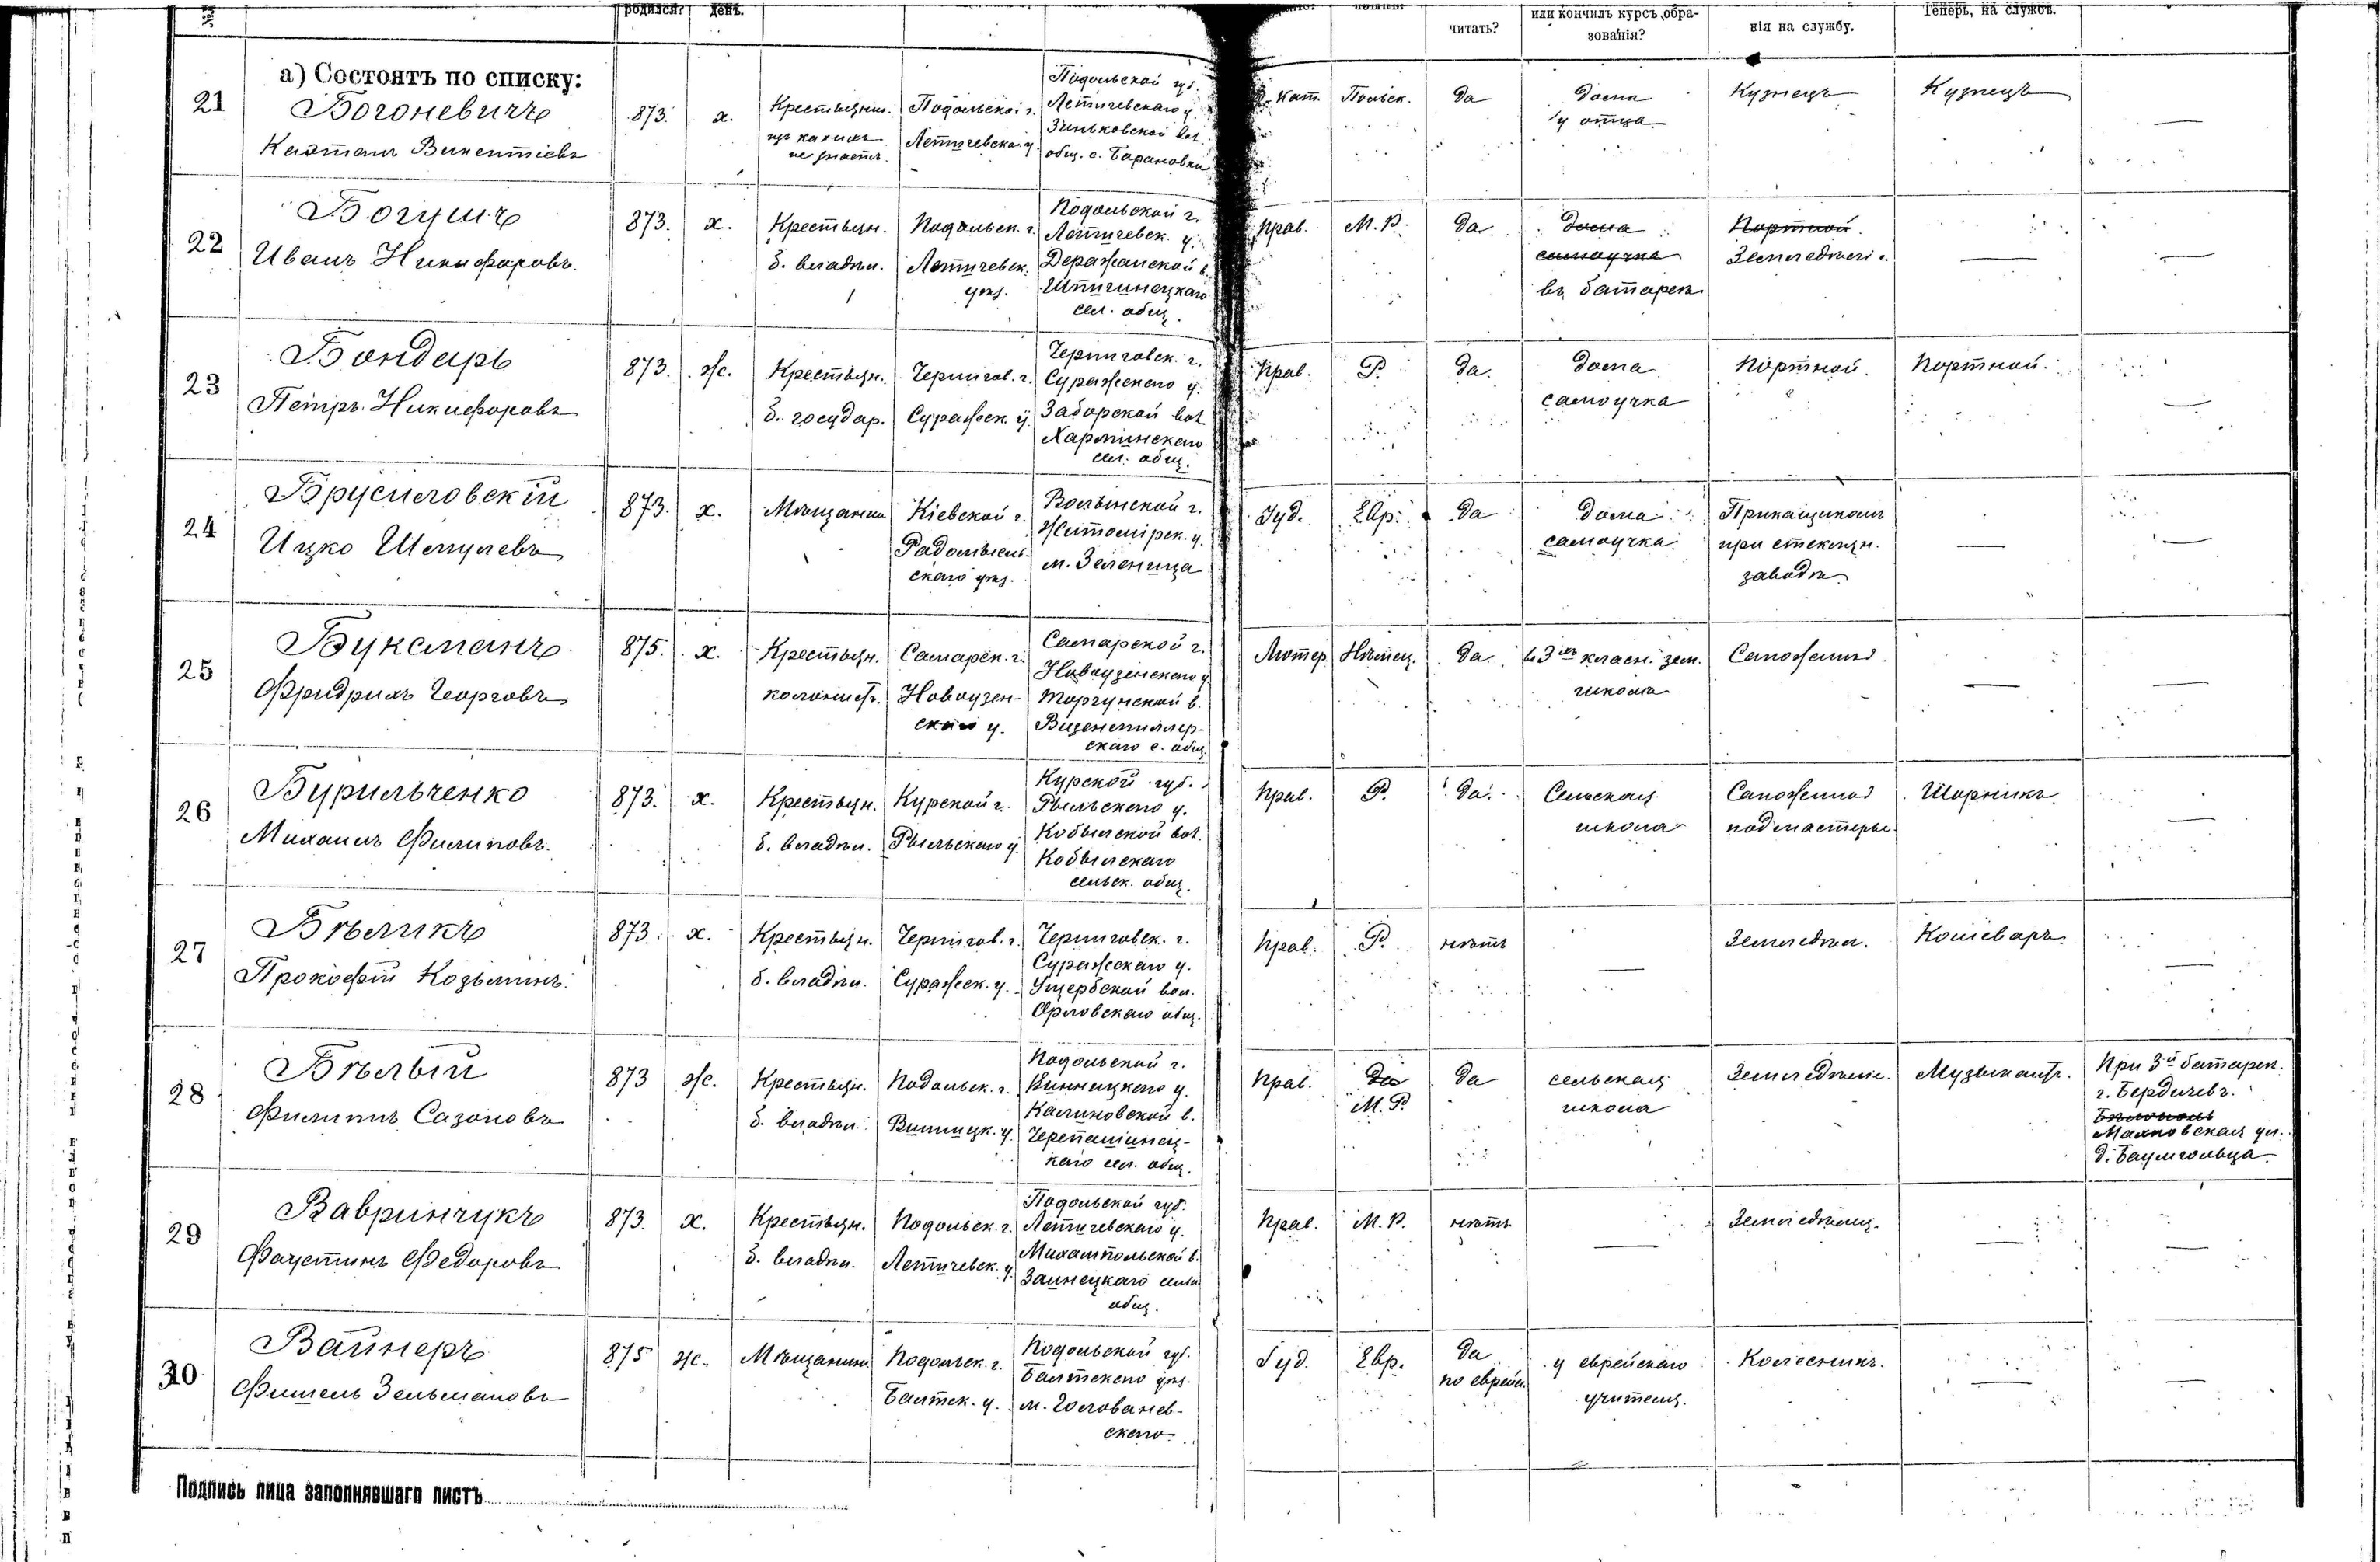 родился? день. читать? или кончилъ курсъ обра-
зованія? нія на службу. теперь, на службѣ.
а) Состоятъ по списку:
21 Богоневичъ
Каэтанъ Викентіевъ
873. х. Крестьянин. изъ какихъ не знаетъ.
Подольской г. Летичевскаго у.
Подольской губ.
Летичевскаго у.
Зиньковской вол.
общ. с. Барановки
Р. Кат. Польск. Да
Дома
у отца
Кузнецъ Кузнецъ —
22 Богушъ
Иванъ Никифоровъ.
873. х. Крестьян.
б. владѣл.
Подольск. г.
Летичевск.
уѣз.
Подольской г.
Летичевск. у.
Деражанской в.
сел. общ.
Прав. М. Р. Да.
Дома
самоучка
въ батареѣ
Портной.
Земледѣліе. — —
23 Бондарь
Петръ Никифоровъ
873. ж. Крестьян.
б. государ.
Чернигов. г.
Суражск. у.
Черниговск. г.
Суражскаго у.
Заборской вол.
сел. общ.
Прав. Р. Да.
Дома
самоучка
Портной. Портной. —
24 Брусиловскій
Ицко Шмулевъ
873. х. Мѣщанин
Кіевской г.
Радомысль-
скаго уѣз.
Волынской г.
Житомірск. у.
м. Зеленица
Іуд. Евр. Да
Дома
самоучка
Прикащикомъ
при стеклян.
заводѣ — —
25 Буксманъ
Фридрихъ Георговъ
875. х. Крестьян.
колонистъ.
Самарск. г.
Новоузен-
скаго у.
Самарской г.
Новоузенскаго у.
Торгунской в.
Визенмиллер-
скаго с. общ.
Лютер. Нѣмец. Да.
школа
Сапожник. — —
26 Бурильченко
Михаилъ Филиповъ.
873. х. Крестьян.
б. владѣл.
Курской г.
Рыльскаго у.
Курской губ.
Рыльскаго у.
Кобыльской вол.
Кобыльскаго
сельск. общ.
Прав. Р. Да.
Сельская
школа
Сапожник
подмастерье
Шорникъ. —
27 Бѣликъ
Прокофій Козьминъ.
873. х. Крестьян.
б. владѣл.
Чернигов. г.
Суражск. у.
Черниговск. г.
Суражскаго у.
Ущербской вол.
Орловскаго общ.
Прав. Р. нѣтъ —
Земледѣл. Кошеваръ. —
28 Бѣлый
Филиппъ Сазоновъ
873 ж. Крестьян.
б. владѣл.
Подольск. г.
Винницк. у.
Подольской г.
Винницкаго у.
Калиновской в.
Черепашинец-
каго сел. общ.
Прав. Да
М. Р. Да
сельская
школа
Земледѣліе. Музыкантъ.
При 3й батареѣ.
г. Бердичевъ.
Махновская ул.
д. Баумгольца.
29 Вавринчукъ
Фаустинъ Федоровъ
873. х. Крестьян.
б. владѣл.
Подольск. г.
Летичевск. у.
Подольской губ.
Летичевскаго у.
Михампольской в.
Заинецкаго сельск.
общ.
Прав. М. Р. нѣтъ —
Земледѣлец. — —
30 Вайнеръ
Фишель Зельмановъ
875 ж. Мѣщанин
Подольск. г.
Балтск. у.
Подольской губ.
Балтскаго уѣз.
м. Голованев-
скаго
Іуд. Евр. Да
по еврейс.
у еврейскаго
учителя.
Колесникъ. — —
Подпись лица заполнявшаго листъ